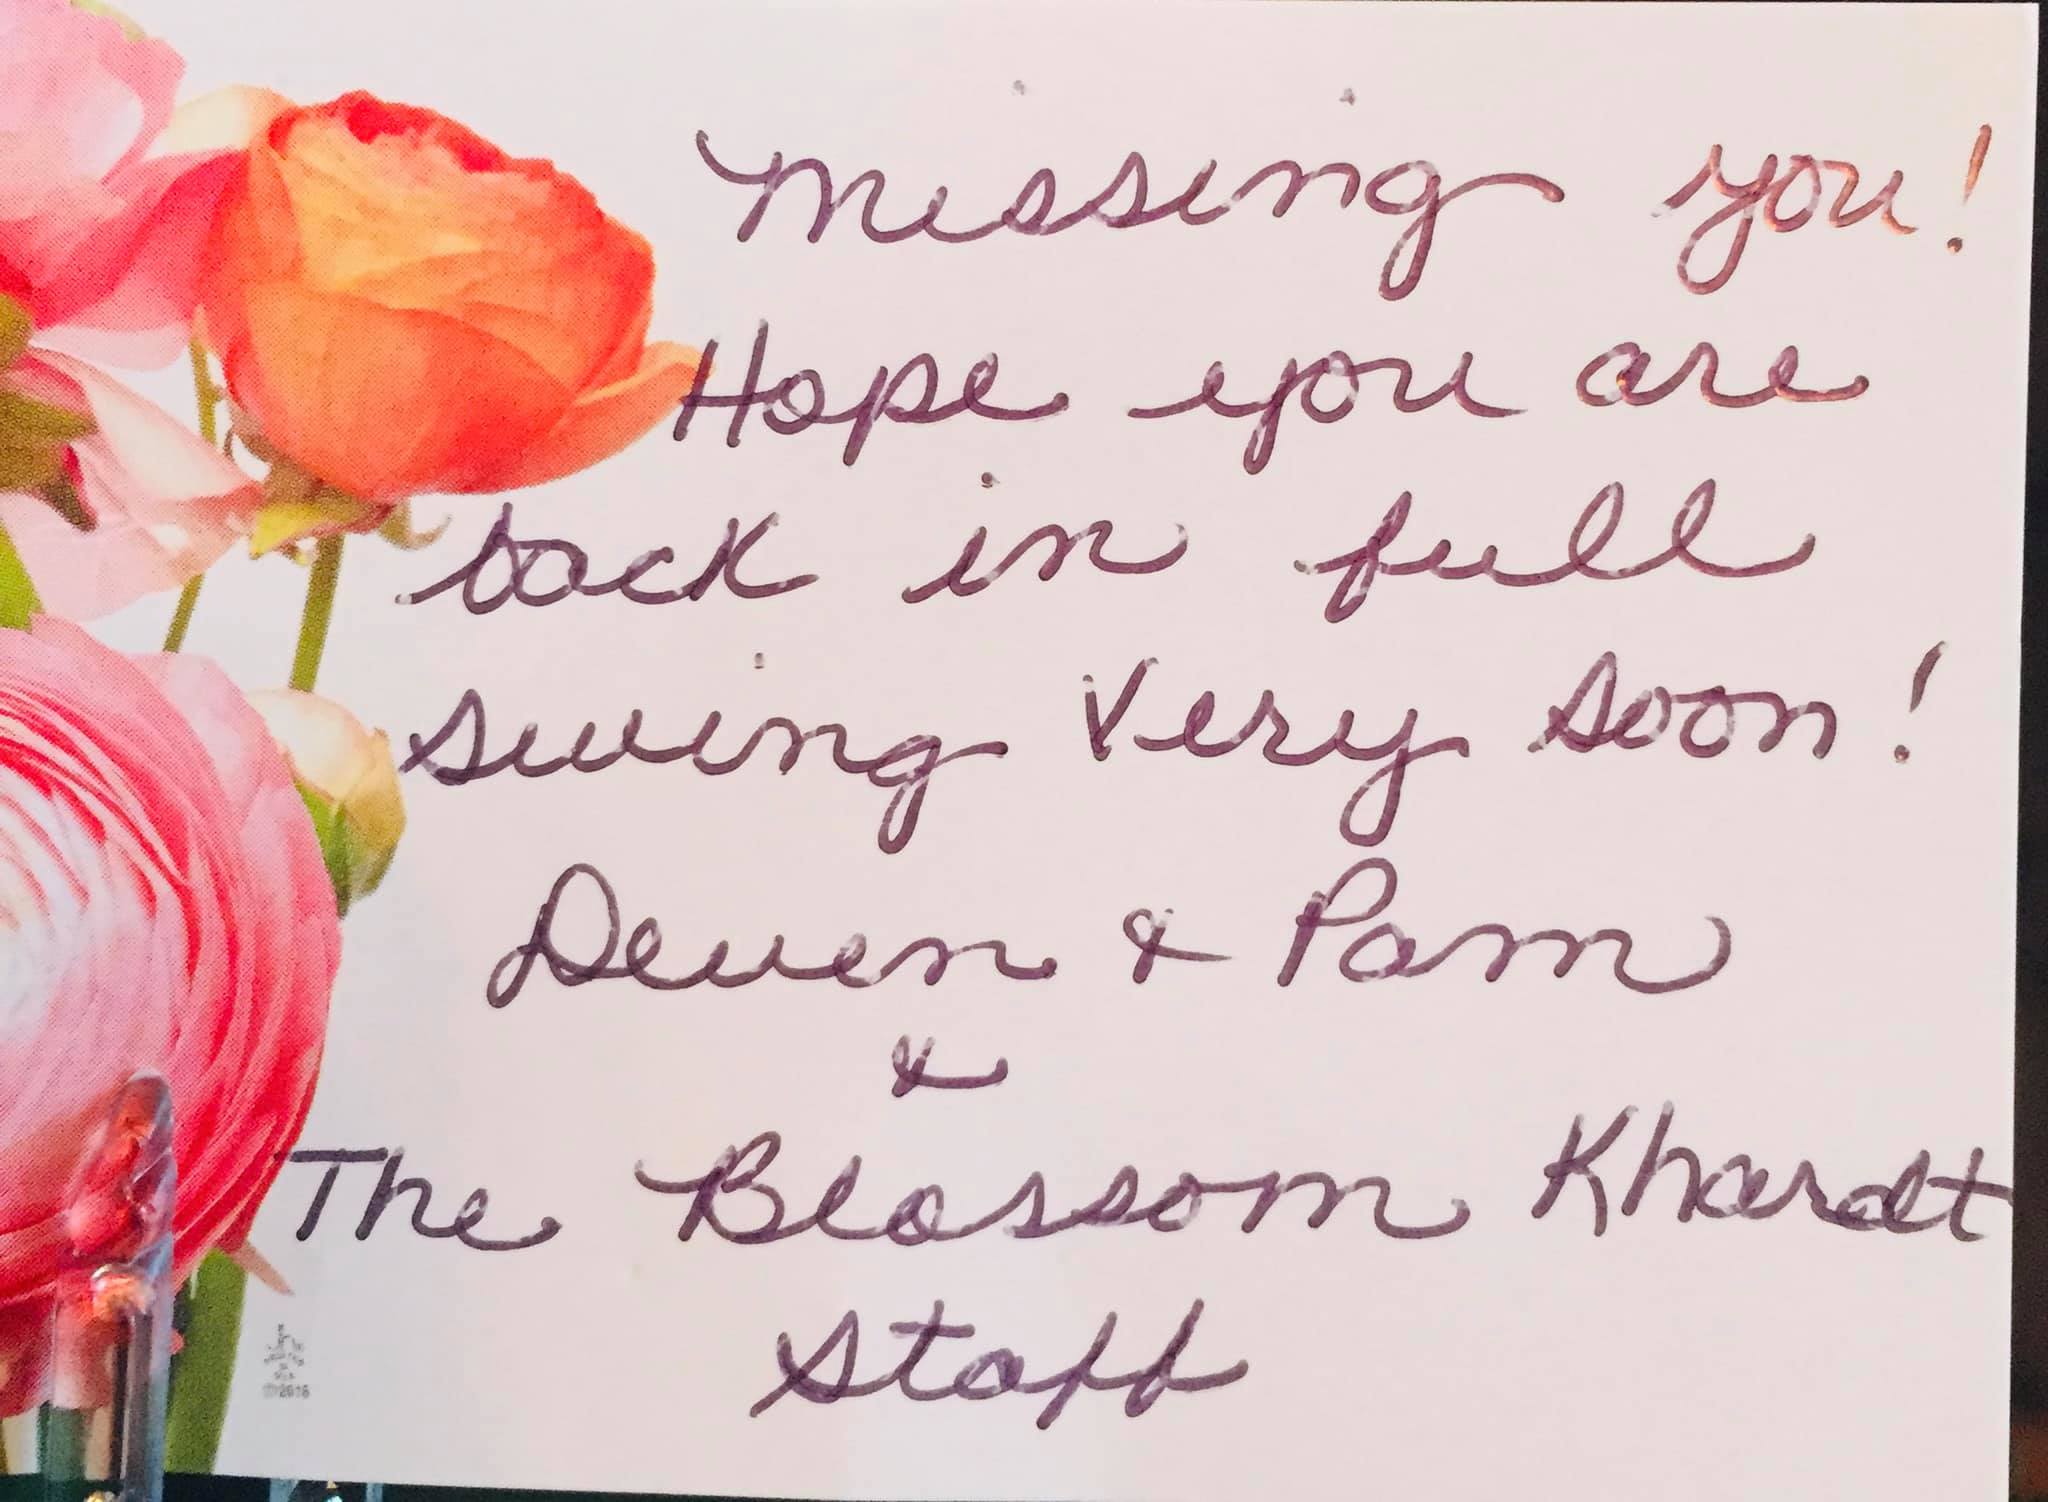 Missing you!
Hope you are
back in full
swing very soon!
Deven & Pam
&
The Blossom Khardt
Staff
©2016